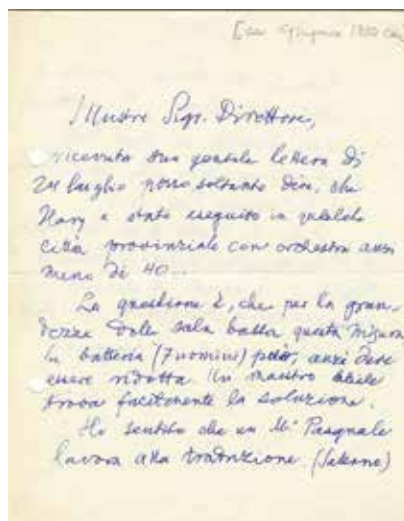 Illustre Sigr. Direttore,
ricevuta sua gentile lettera di
24 luglio posso soltanto dire, che
Hary è stato eseguito in qualche
città provinziale con orchestra anzi
meno di 40..
La questione è, che per la gran-
dezza sala basta questa
la batteria (7 uomini) può, anzi deve
essere ridotta. Un maestro abile
trova facilmente la soluzione.
Ho sentito che un Mº Pasquale
lavora alla traduzione. (Salerno)